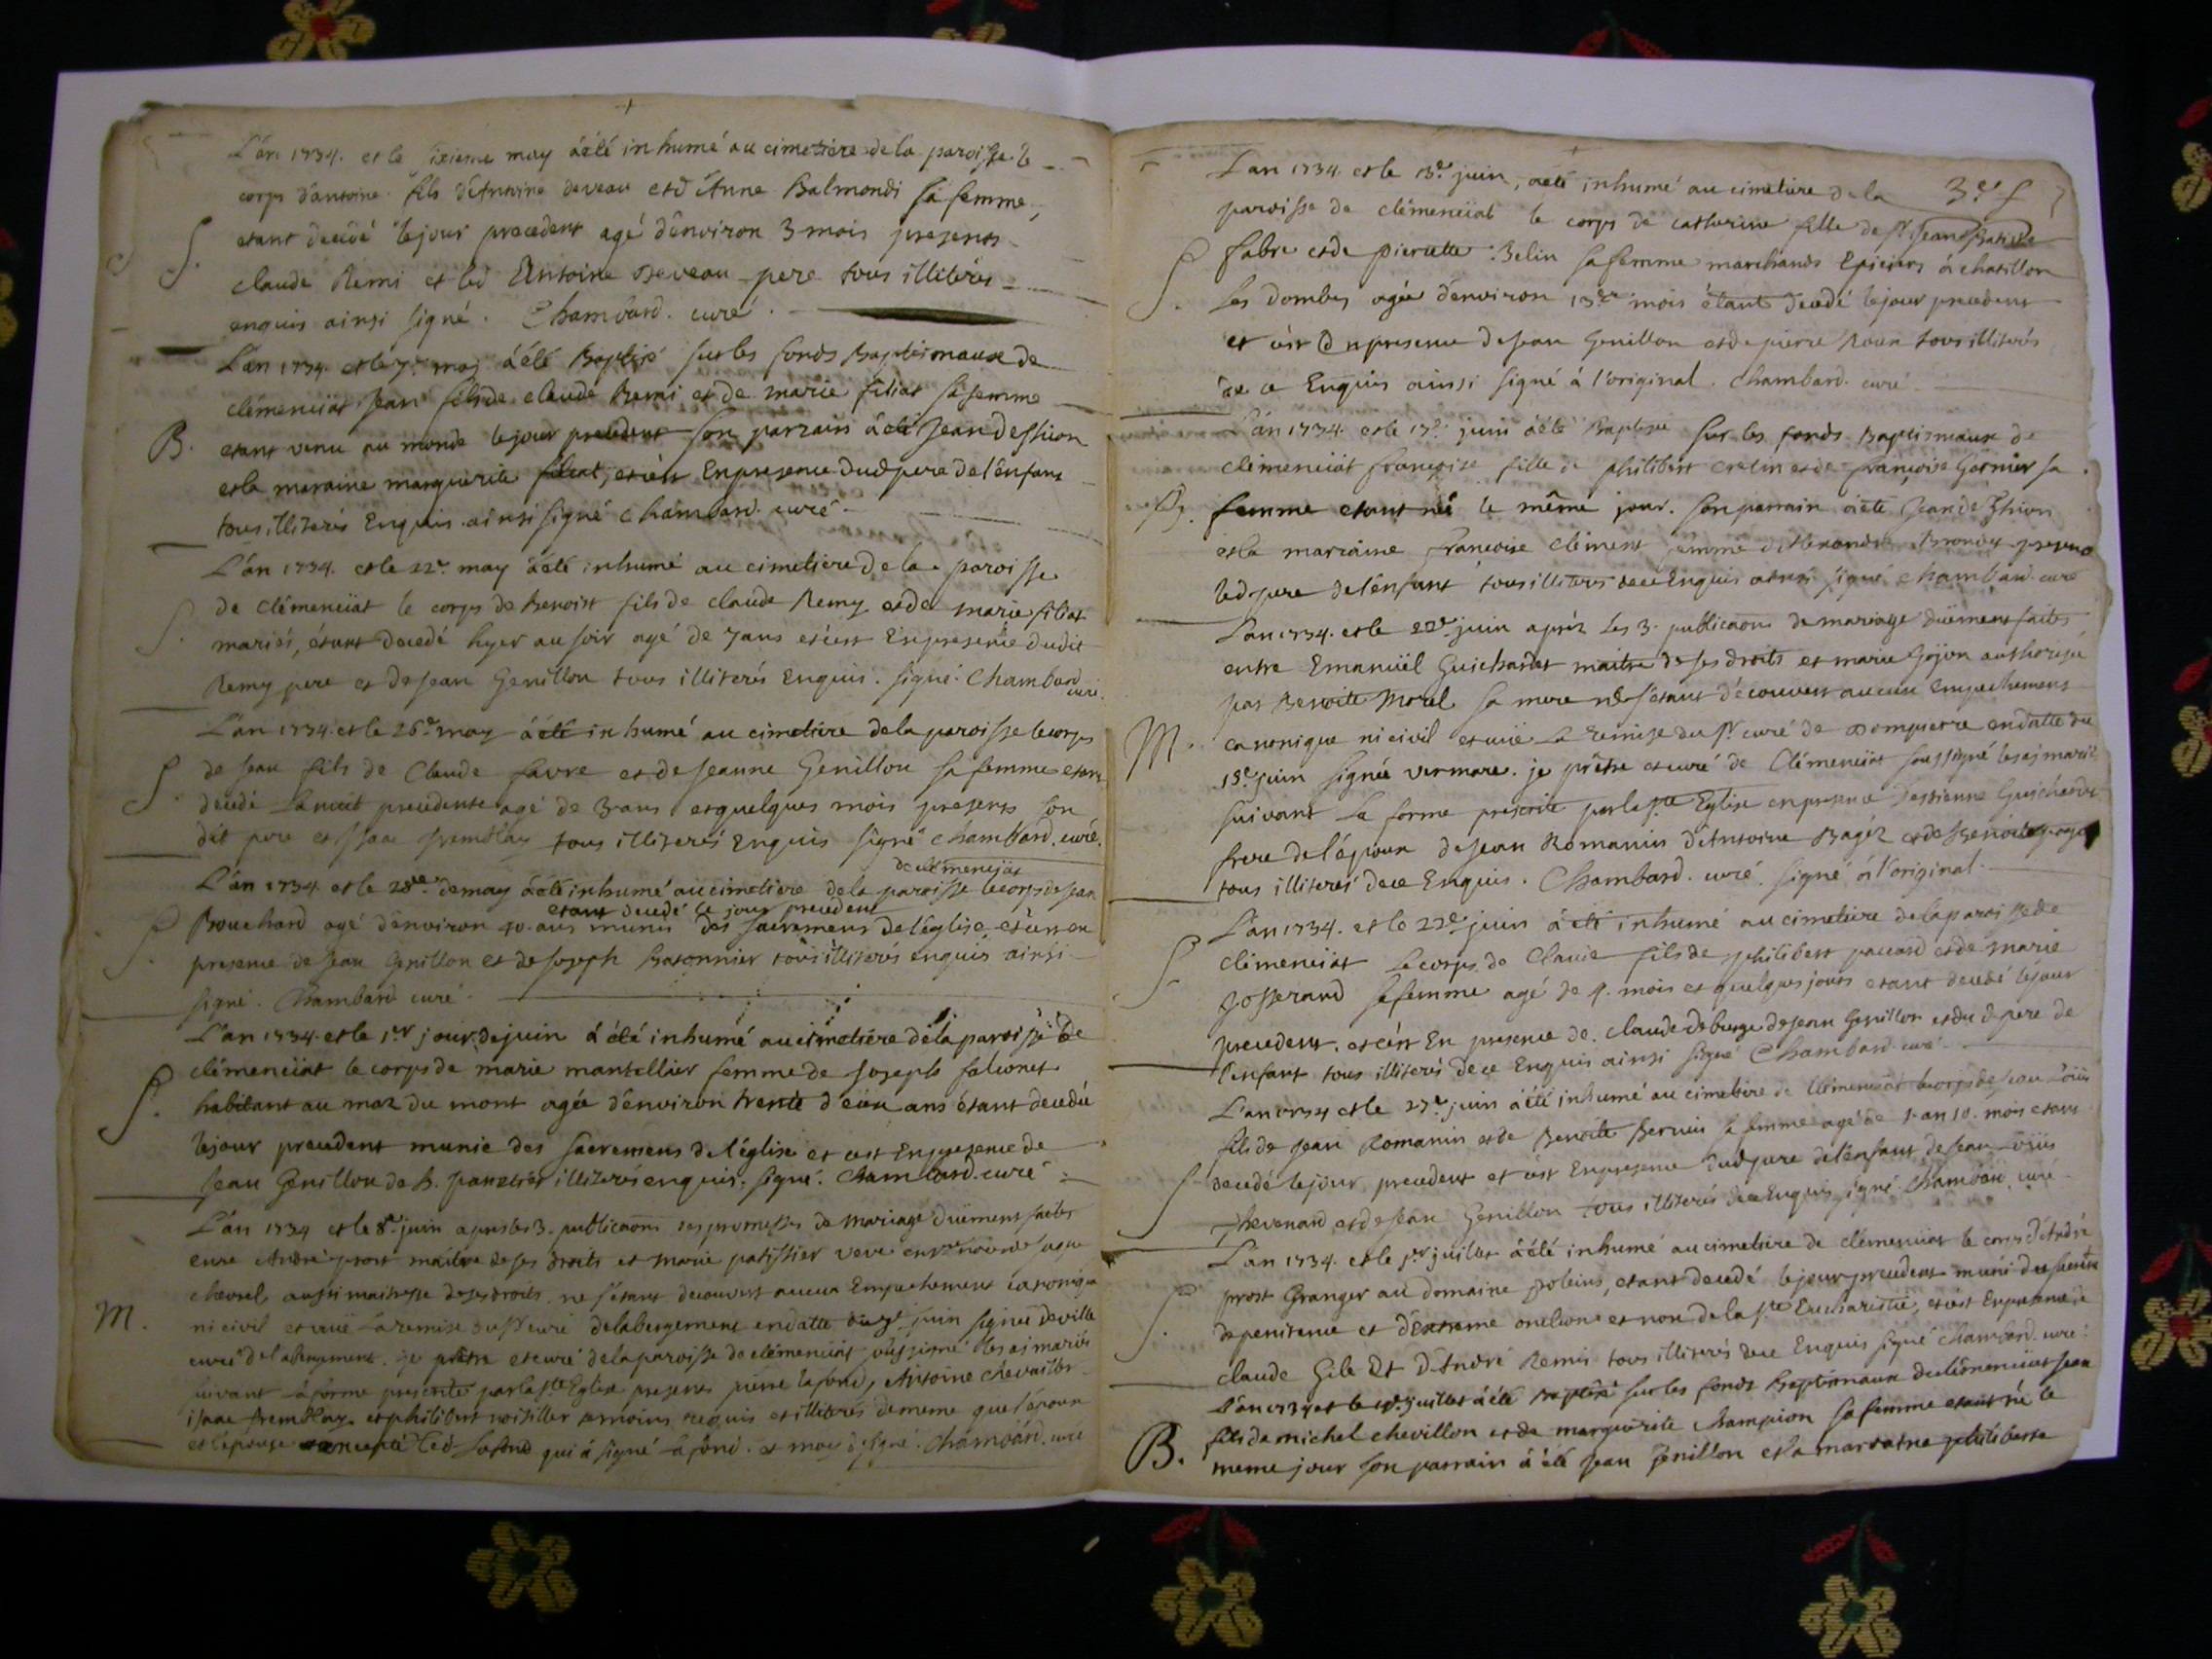 L'an 1734. et le sixieme may à été inhumé au cimetiere de la paroisse le
corps d'antoine fils d'Antoine deveau et d'Anne Balmondi sa femme,
S. etant decedé le jour precedent agé d'environ 3 mois presents
claude Remi et led Antoine deveau pere tous illiterés
enquis ainsi signé. Chambard. curé.
L'an 1734. et le 7e may à été Baptisé sur les fonds Baptismaux de
clémenciat Jean fils de claude Remi et de marie filiat sa femme
B. etant venu au monde le jour precedent son parrain à été Jean
et la maraine marguerite filiat, et c'est En presence dud pere de l'enfant
tous illiterés Enquis ainsi signé Chambard. curé
L'an 1734. et le 22e may à été inhumé au cimetiere de la paroisse
de Clémenciat le corps de Benoist fils de claude Remy et de marie filiat
S. mariés, étant decedé hyer au soir agé de 7 ans et c'est En presence dudit
Remy pere et de Jean Genillon tous illiterés Enquis. signé Chambard
curé.
L'an 1734. et le 26e may à été inhumé au cimetiere de la paroisse le corps
S. de Jean fils de Claude favre et de Jeanne Genillon sa femme etant
decedé la nuit precedente agé de 3 ans et quelques mois presents son
dit pere et Isaac tremblay tous illiterés Enquis signé Chambard. curé.
de clémenciat
L'an 1734. et le 28e de may à été inhumé au cimetiere de la paroisse le corps de Jean
etant decedé le jour precedent
S. Bouchard agé d'environ 40 ans munis des sacremens de l'église et c'est en
presence de Jean Genillon et de Joseph Batonnier tous illiterés enquis ainsi
signé. Chambard curé.
L'an 1734. et le 1er jour de juin à été inhumé au cimetiere de la paroisse de
clémenciat le corps de marie mantellier femme de Joseph falconet
S. habitant au maz du mont agée d'environ trente deux ans étant decedée
le jour precedent munie des sacremens de l'église et cest En presence de
Jean Genillon de B. panetier illiterés enquis. signé. Chambard. curé
L'an 1734 et le 8e juin apres les 3. publicaõns des promesses de mariage düement faites
entre André prost maitre de ses droits et marie patissier veve en
chevrel aussi maitresse de ses droits. ne s'étant decouvert aucun Empechement canonique
M. ni civil et vuë la remise du Sr curé de labergement en datte du 7e juin signée deville
curé de l'abergement. je prêtre et curé de la paroisse de clémenciat soussigné les ai mariés
suivant la forme prescrite par la Ste Eglise presents pierre lafond, Antoine chevailler
isaac tremblay et philibert temoins requis et illiterés de meme que l'époux
et l'épouse excepté led lafond qui à signé lafond. et moy signé. Chambard. curé
3e f
L'an 1734. et le 13e juin, à été inhumé au cimetiere de la
paroisse de clémenciat le corps de catherine fille de Sr Jean Batiste
S. fabre et de pierrette Belin sa femme marchands Epiciers à chatillon
les dombes agée d'environ 13 mois étant decedé le jour precedent
et c'est En presence de Jean Genillon et de pierre Roux tous illiterés
de ce Enquis ainsi signé à l'original. Chambard. curé
L'an 1734. et le 17e juin à été Baptisée sur les fonds Baptismaux de
clémenciat françoise fille de philibert cretin et de françoise Garnier sa
B. femme etant née le même jour. son parrain à été Jean
et la marraine françoise clément femme d'Alexandre presens
led pere de l'enfant tous illiterés de ce Enquis ainsi signé Chambard. curé
L'an 1734. et le 22e juin après les 3. publicaõns de mariage düement faites
entre Emanuël Guichardet maitre de ses droits et marie Gojon authorisée
par Benoite Morel sa mere ne s'étant découvert aucun Empechement
M. canonique ni civil et vuë la remise du Sr curé de dompierre en datte du
18e juin signée vermare. je prêtre et curé de Clémenciat soussigné les ai mariés
suivant la forme prescrite par la Ste Eglise en presence d'estienne Guichardet
frere de l'époux de Jean Romanin d'Antoine Bagés et de Benoit
tous illiterés de ce Enquis. Chambard. curé. signé à l'original.
L'an 1734. et le 22e juin à été inhumé au cimetiere de la paroisse de
S. Clémenciat le corps de Claude fils de philibert paccard et de marie
Josserand sa femme agé de 4. mois et quelques jours etant decedé le jour
precedent. et c'est En presence de claude deberge de Jean Genillon et dud pere de
l'enfant tous illiterés de ce Enquis ainsi signé Chambard curé
L'an 1734 et le 27e juin à été inhumé au cimetiere de Clémenciat le corps de Jean Loüis
fils de Jean Romanin et de Benoite Bernin sa femme agé de 1 an 10. mois etant
S. decedé le jour precedent et cest En presence dud pere de l'enfant de Jean Loüis
thevenard et de Jean Genillon tous illiterés de ce Enquis signé. Chambard. curé
L'an 1734. et le 1er juillet à été inhumé au cimetiere de clémenciat le corps d'André
prost Granger au domaine poleins, etant decedé le jour precedent muni des sacremts
S. de penitence et d'Extreme onction et non de la Ste Eucharistie, et c'est En presence de
claude Gile Et d'André Remis tous illiterés de ce Enquis signé Chambard. curé.
L'an 1734 et le juillet à été Baptisé sur les fonds Baptismaux de clémenciat Jean
B. fils de michel chevillon et de marguerite champion sa femme etant né le
meme jour son parrain à été Jean Genillon et la marraine philiberte